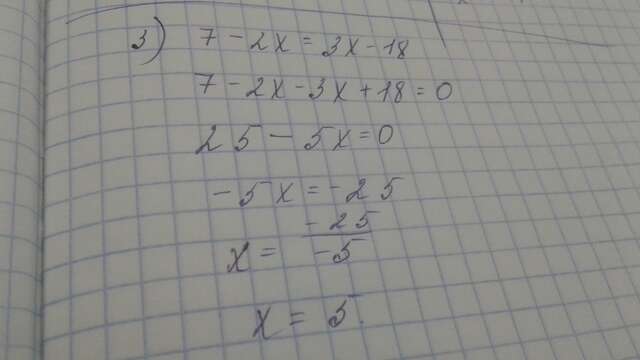 3) 7 - 2x = 3x - 18
7 - 2x - 3x + 18 = 0
25 - 5x = 0
-5x = -25
x = -25/-5
x = 5.